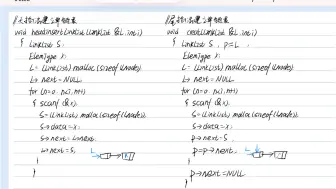 void headinsertLinklist(Linklist &L, int i)
{ Linklist S;
Elemtype x;
L = (Linklist) malloc(sizeof(Lnode));
L→next=NULL;
for (n=0; n<i; n++)
{ scanf(&x);
S=(Linklist) malloc(sizeof(Lnode));
S→data=x;
S→next=L→next
L→next=S;
}
}
{ Linklist S, p=L;
Elemtype x;
L = (Linklist) malloc(sizeof(Lnode));
L→next=NULL;
for (n=0; n<i; n++)
{ scanf(&x);
S=(Linklist) malloc(sizeof(Lnode));
S→data=x;
p→next=S;
p=p→next;
}
p→next=NULL
}